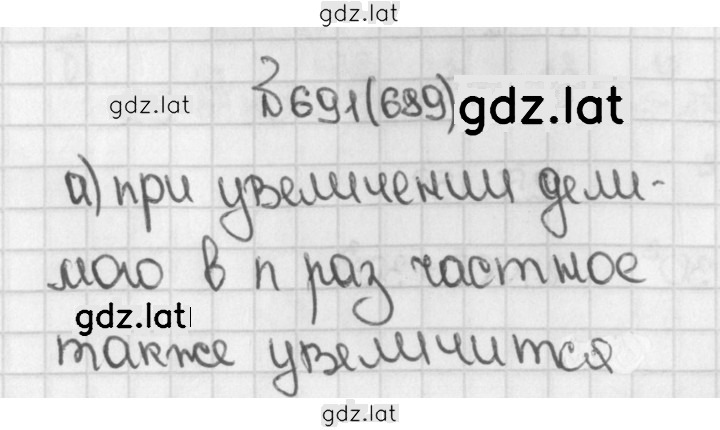 gdz.lat
gdz.lat №691(689) gdz.lat
а) при увеличении дели-
мого в n раз частное
gdz.lat
также увеличится
gdz.lat